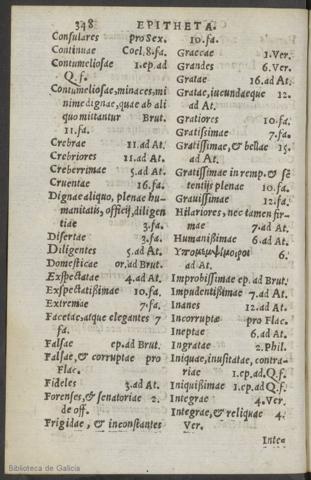 348 EPITHETA.
Consulares pro Sex. 10.fa.
Continuae Coel.8.fa.
Contumeliosae 1.ep.ad
Q.f.
Contumeliosae, minaces, mi
nime dignae, quae ab ali
quo mittantur Brut.
11.fa.
Crebrae 11.ad At.
Crebriores 11.ad At.
Creberrimae 5.ad At.
Cruentae 16.fa.
Dignae aliquo, plenae hu-
manitatis, officij, diligen
tiae 3.fa.
Disertae 3.fa.
Diligentes 5.ad At.
Domesticae or.ad Brut.
Exspectatae 4.ad At.
Exspectatißimae 10.fa.
Extremae 7.fa.
Facetae, atque elegantes 7
fa.
Falsae ep.ad Brut.
Falsae, & corruptae pro
Flac.
Fideles 3.ad At.
Forenses, & senatoriae 2.
de off.
Frigidae, & inconstantes
Graecae 1.Ver.
Grandes 6.Ver.
Gratae 16.ad At.
Gratae, iucundaeque 12.
ad At.
Gratiores 10.fa.
Gratißimae 7.fa.
Gratissimae, & bellae 15.
ad At.
Gratissimae in remp. & sē
tentijs plenae 10.fa.
Grauissimae 12.fa.
Hilariores, nec tamen fir-
mae 7.ad At.
Humanißimae 6.ad At.
6.
ad At.
Improbissimae ep.ad Brut.
Impudentißimae 7.ad At.
Inanes 12.ad At.
Incorruptae pro Flac.
Ineptae 6.ad At.
Ingratae 2.Phil.
Iniquae, inusitatae, contra-
riae 1.ep.ad.Q.f.
Iniquißimae 1.ep.ad Q.f.
Integrae 4.Ver.
Integrae, & reliquae 4.
Ver.
Inte
Biblioteca de Galicia